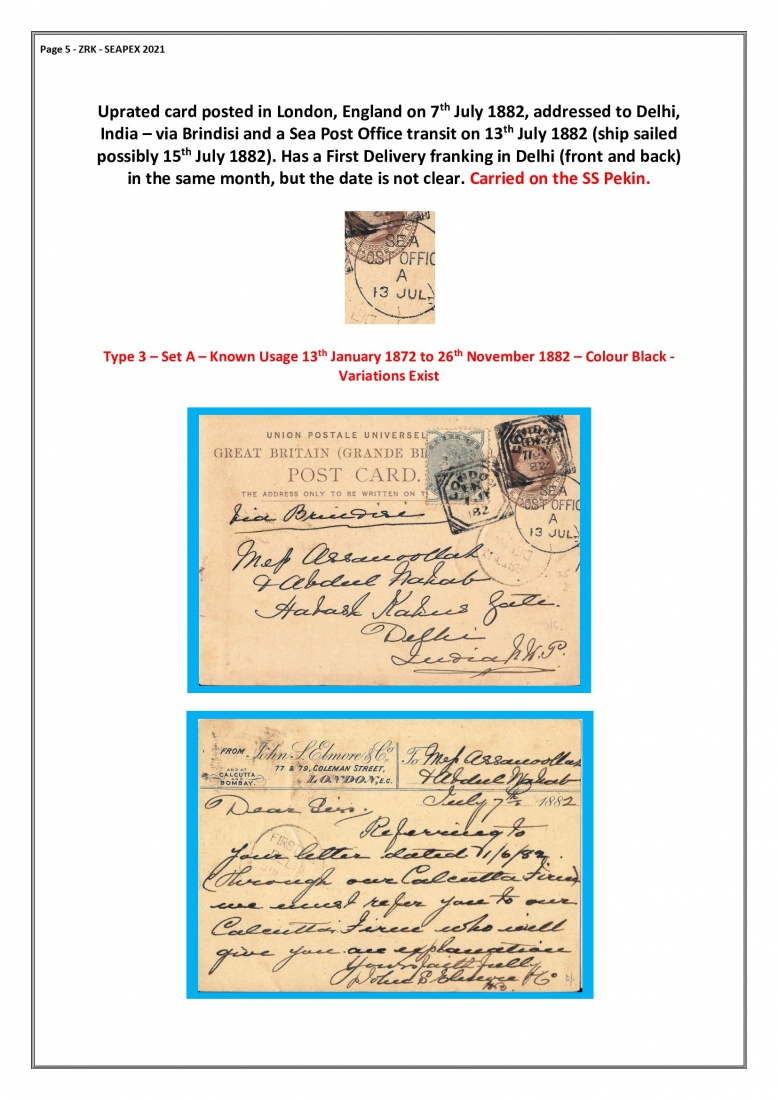 Page 5 - ZRK - SEAPEX 2021
Uprated card posted in London, England on 7th July 1882, addressed to Delhi,
India – via Brindisi and a Sea Post Office transit on 13th July 1882 (ship sailed
possibly 15th July 1882). Has a First Delivery franking in Delhi (front and back)
in the same month, but the date is not clear. Carried on the SS Pekin.
SEA
POST OFFIC
A
13 JUL
Type 3 – Set A – Known Usage 13th January 1872 to 26th November 1882 – Colour Black -
Variations Exist
UNION POSTALE UNIVERSEL
GREAT BRITAIN (GRANDE BR
POST CARD.
THE ADDRESS ONLY TO BE WRITTEN ON T
LONDON
82
LONDON
82
SEA
POST OFFIC
A
13 JUL
Via Brindisi
Mess Assanoollah
& Abdul Wahab
Habash Kahns Gate.
Delhi
India N.W.P.
FROM John S. Elmore & Co
77 & 79, COLEMAN STREET,
LONDON, E.C.
AND AT
CALCUTTA
AND
BOMBAY.
To Mess Assanoollah
& Abdul Wahab
July 7th 1882
Dear Sirs,
Referring to
your letter dated 11/6/82.
through our Calcutta Firm
we must refer you to our
Calcutta Firm who will
give you an explanation
Yours faithfully
John S Elmore & Co
FIRS
DEL